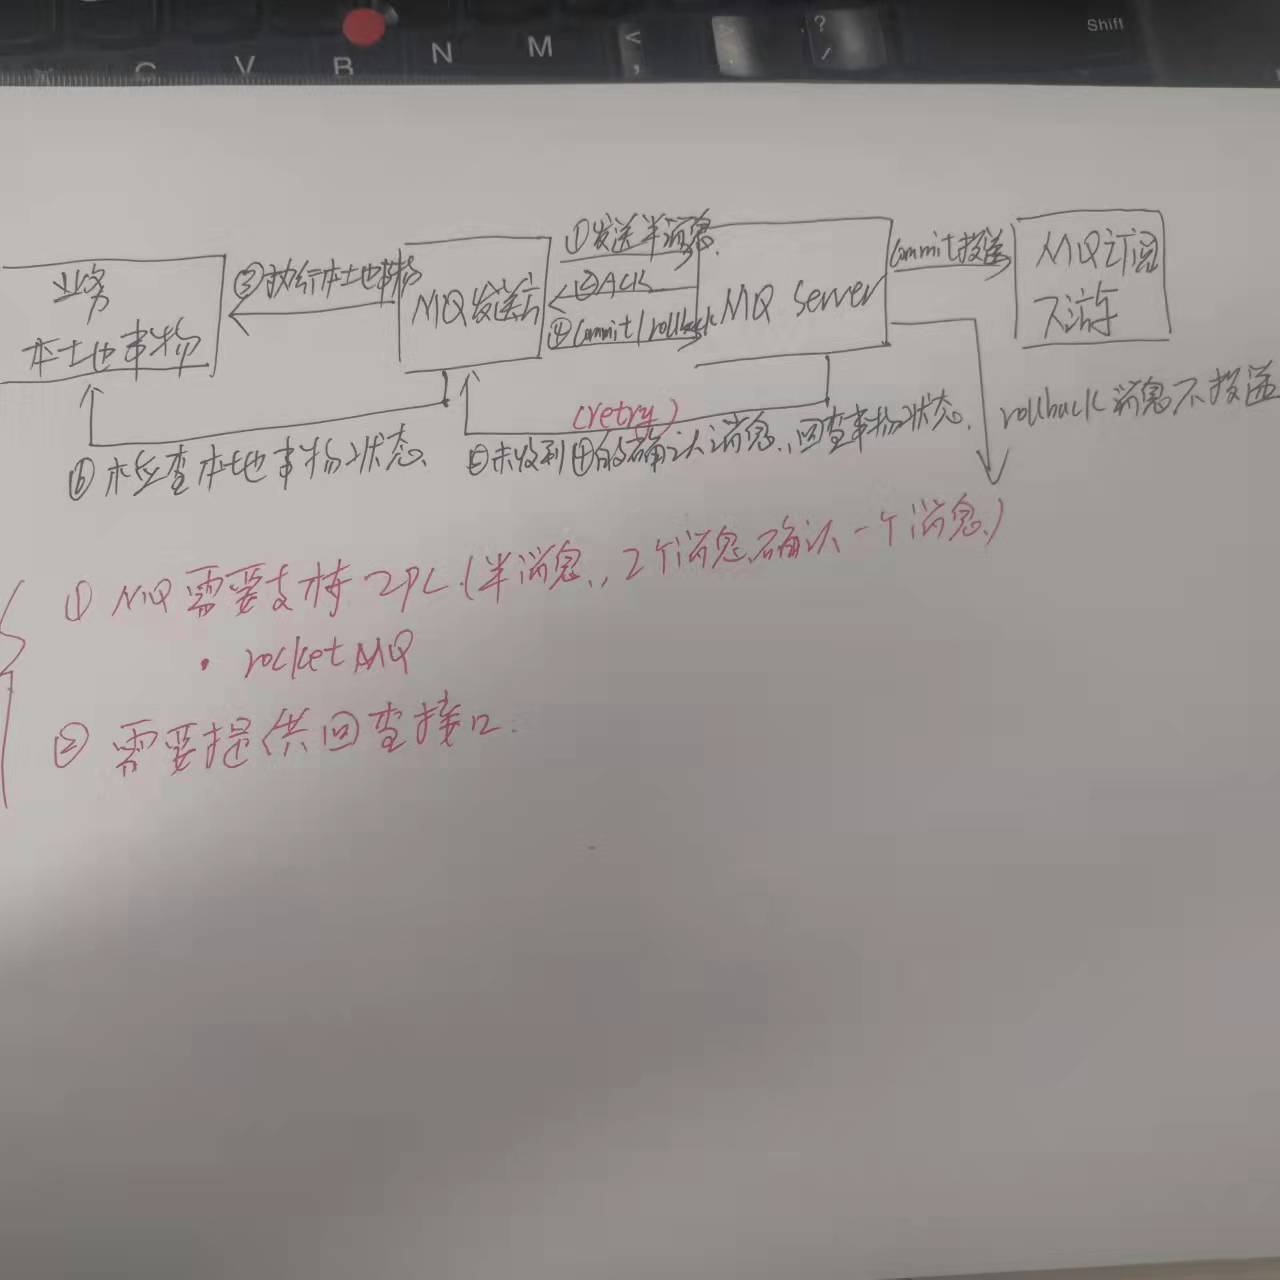 C V B N M < , > . ? / Shift
业务
本土也事物
③执行本土也事物
MQ发送方
①发送半消息.
②ACK
④Commit/rollback
MQ Server
Commit投送
MQ订阅
下游
rollback 消息不投送
(retry)
⑤未收到④的确认消息,回查事物状态.
⑥检查本地事物状态
① MQ需要支持2PC.(半消息,,2个消息确认一个消息)
· rocketMQ
② 需要提供回查接口.